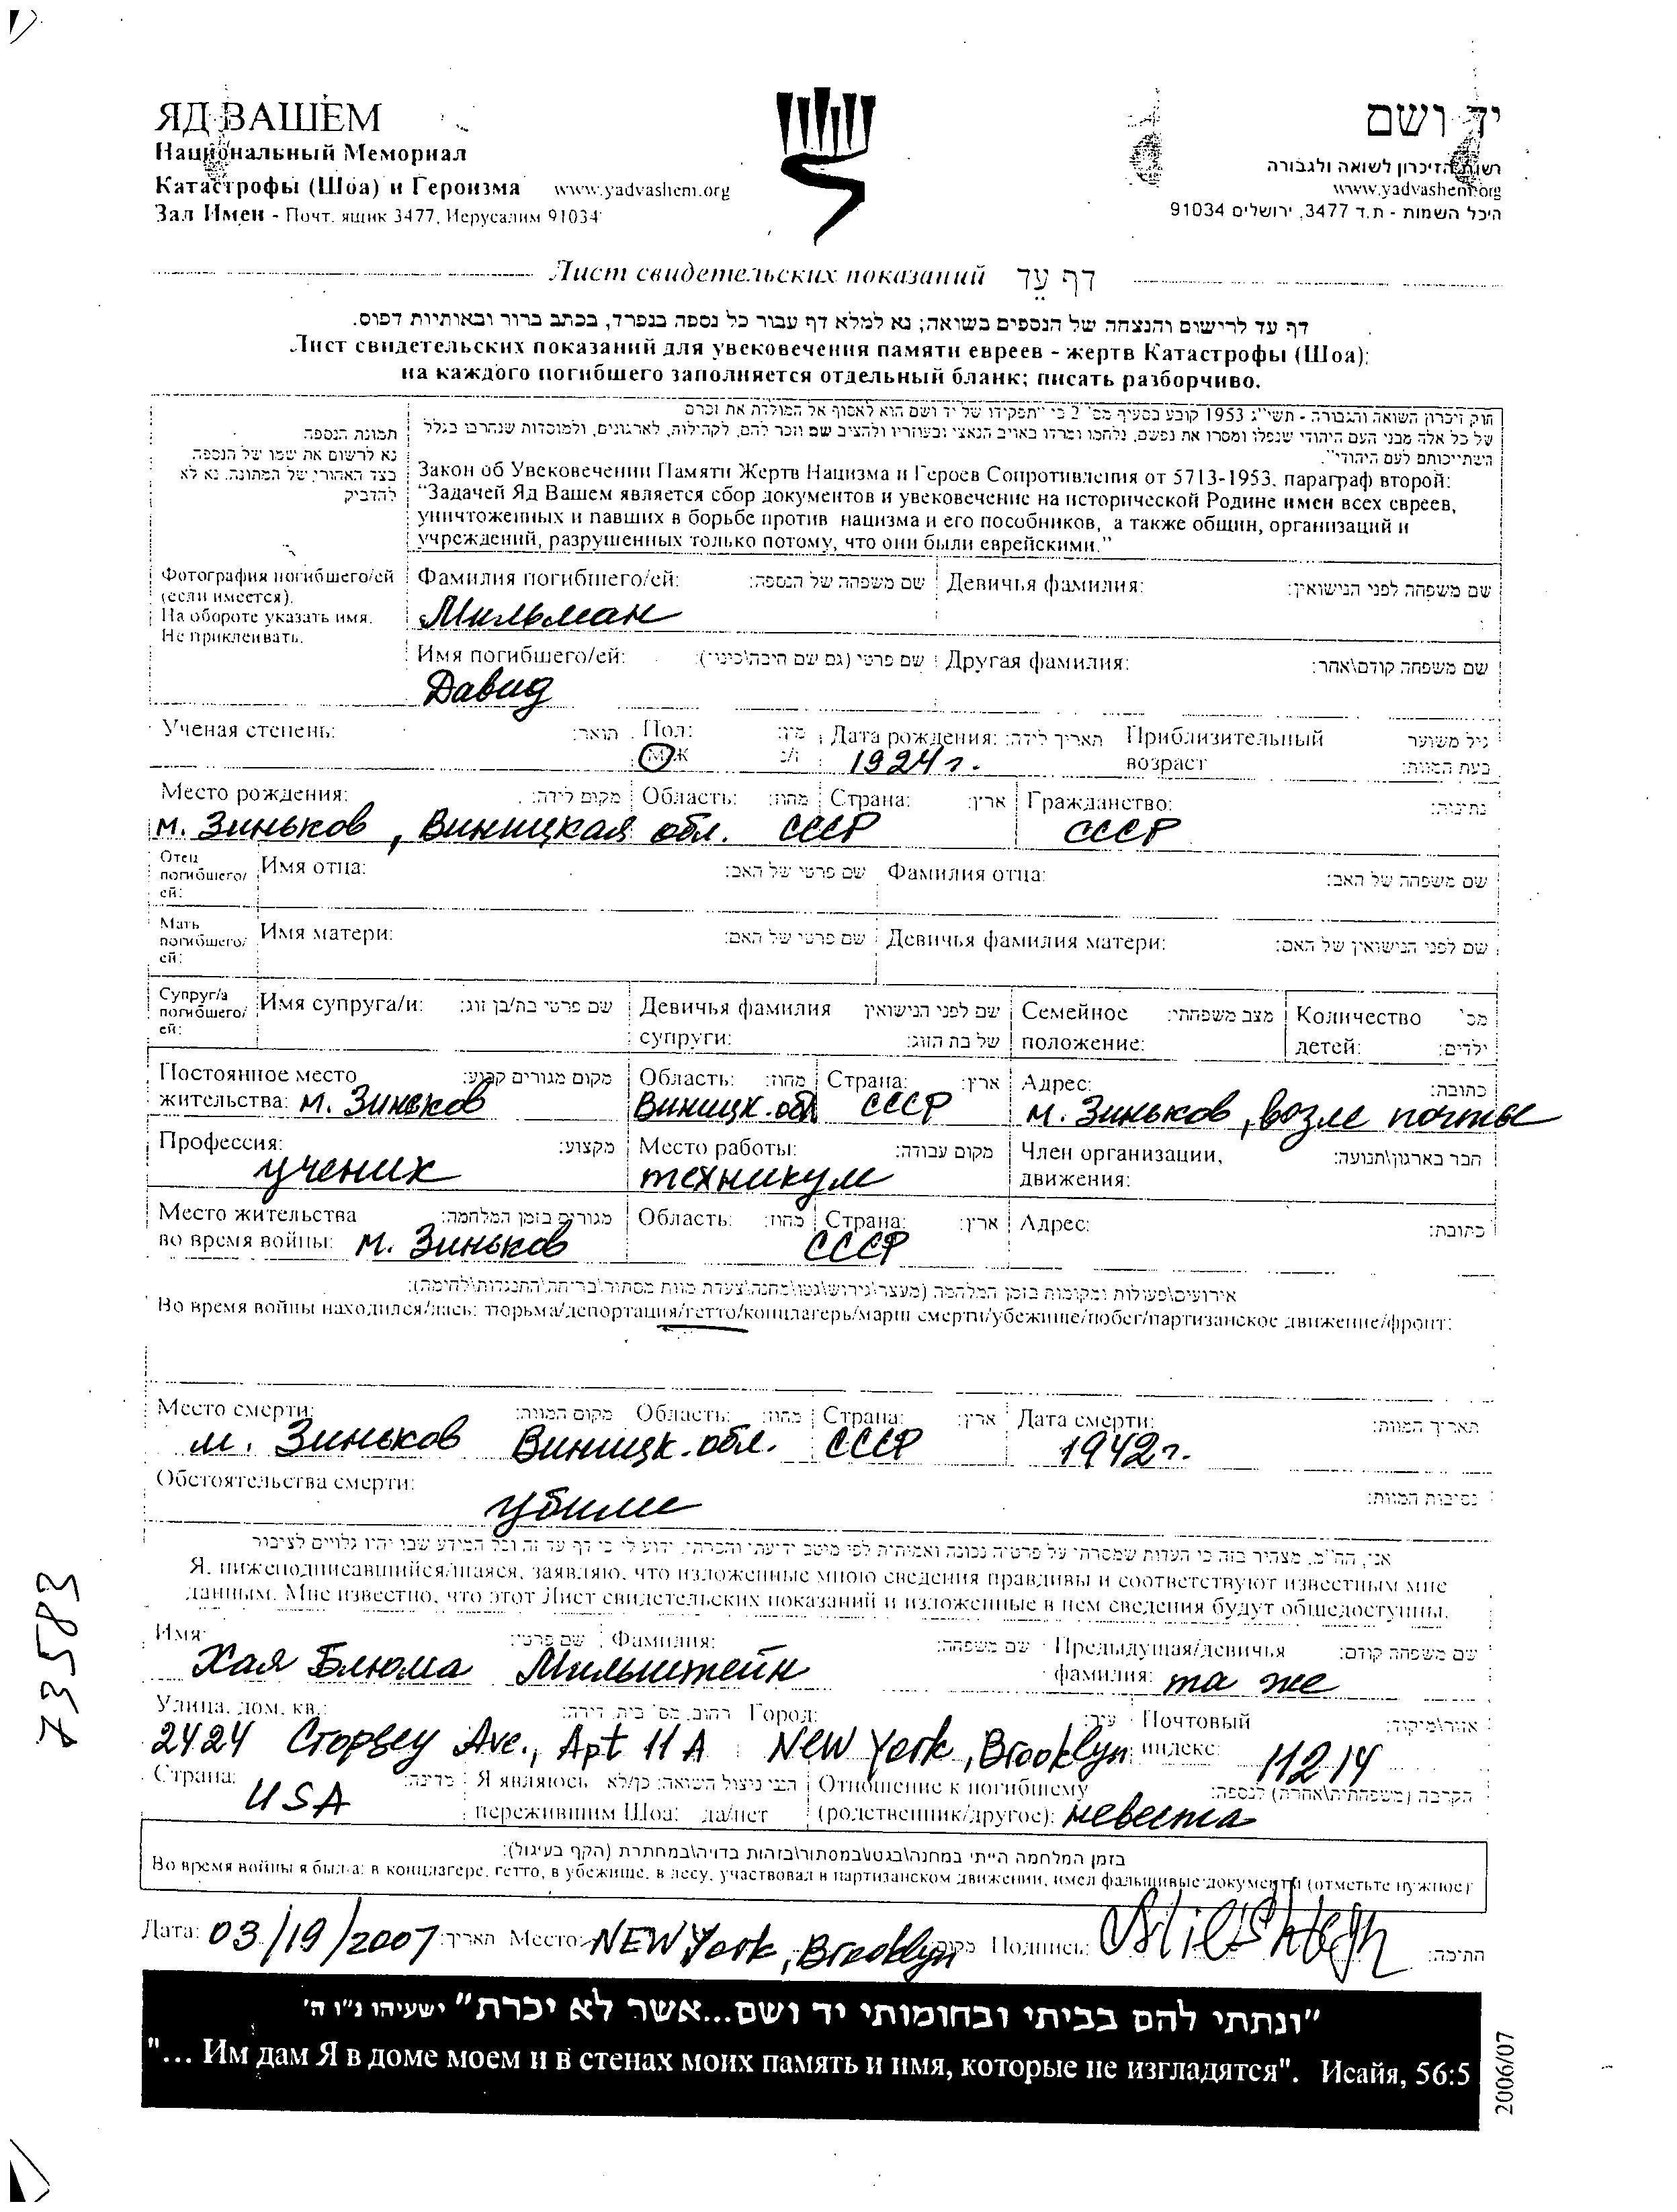 ЯД ВАШЕМ
Национальный Мемориал
Катастрофы (Шоа) и Героизма www.yadvashem.org
Зал Имен - Почт. ящик 3477, Иерусалим 91034
יד ושם
רשות הזיכרון לשואה ולגבורה
www.yadvashem.org
היכל השמות - ת.ד 3477, ירושלים 91034
Лист свидетельских показаний דף עֵד
דף עד לרישום והנצחה של הנספים בשואה; נא למלא דף עבור כל נספה בנפרד, בכתב ברור ובאותיות דפוס.
Лист свидетельских показаний для увековечения памяти евреев - жертв Катастрофы (Шоа);
на каждого погибшего заполняется отдельный бланк; писать разборчиво.
חוק זיכרון השואה והגבורה - תשי"ג 1953 קובע בסעיף מס' 2 כי "תפקידו של יד ושם הוא לאסוף אל המולדת את זכרם
של כל אלה מבני העם היהודי שנפלו ומסרו את נפשם, נלחמו ומרדו באויב הנאצי ובעוזריו ולהציב שם וזכר להם, לקהילות, לארגונים, ולמוסדות שנחרבו בגלל
השתייכותם לעם היהודי".
תמונת הנספה
נא לרשום את שמו של הנספה
בצד האחורי של התמונה. נא לא
להדביק
Закон об Увековечении Памяти Жертв Нацизма и Героев Сопротивления от 5713-1953, параграф второй:
"Задачей Яд Вашем является сбор документов и увековечение на исторической Родине имен всех евреев,
уничтоженных и павших в борьбе против нацизма и его пособников, а также общин, организаций и
учреждений, разрушенных только потому, что они были еврейскими."
Фотография погибшего/ей
(если имеется).
На обороте указать имя.
Не приклеивать.
Фамилия погибшего/ей: שם משפחה של הנספה: Девичья фамилия: שם משפחה לפני הנישואין:
Мильман
Имя погибшего/ей: שם פרטי (גם שם חיבה\כינוי): Другая фамилия: שם משפחה קודם\אחר:
Давид
Ученая степень: תואר: Пол: מין: Дата рождения: תאריך לידה: Приблизительный גיל משוער
М/Ж ז/נ 1924 г. возраст בעת המוות:
Место рождения: מקום לידה: Область: מחוז: Страна: ארץ: Гражданство: נתינות:
м. Зиньков, Виницкая обл. СССР СССР
Отец погибшего/ей: Имя отца: שם פרטי של האב: Фамилия отца: שם משפחה של האב:
Мать погибшего/ей: Имя матери: שם פרטי של האם: Девичья фамилия матери: שם לפני הנישואין של האם:
Супруг/а погибшего/ей: Имя супруга/и: שם פרטי בת/בן זוג: Девичья фамилия שם לפני הנישואין Семейное מצב משפחתי: Количество מס'
супруги: של בת הזוג: положение: детей: ילדים:
Постоянное место מקום מגורים קבוע: Область: מחוז: Страна: ארץ: Адрес: כתובת:
жительства: м. Зиньков Виницк. обл СССР м. Зиньков, возле почты
Профессия: מקצוע: Место работы: מקום עבודה: Член организации, חבר בארגון\תנועה:
ученик техникум движения:
Место жительства מגורים בזמן המלחמה: Область: מחוז: Страна: ארץ: Адрес: כתובת:
во время войны: м. Зиньков СССР
אירועים\פעולות ומקומות בזמן המלחמה (מעצר\גירוש\גטו\מחנה\צעדת מוות מסתור\בריחה\התנגדות\לחימה):
Во время войны находился/лась: тюрьма/депортация/гетто/концлагерь/марш смерти/убежище/побег/партизанское движение/фронт:
Место смерти: מקום המוות: Область: מחוז: Страна: ארץ: Дата смерти: תאריך המוות:
м. Зиньков Виницк. обл. СССР 1942 г.
Обстоятельства смерти: נסיבות המוות:
убили
אני, הח"מ, מצהיר בזה כי העדות שמסרתי על פרטיה נכונה ואמיתית לפי מיטב ידיעתי והכרתי. ידוע לי כי דף עד זה וכל המידע שבו יהיו גלויים לציבור
Я, нижеподписавшийся/шаяся, заявляю, что изложенные мною сведения правдивы и соответствуют известным мне
данным. Мне известно, что этот Лист свидетельских показаний и изложенные в нем сведения будут общедоступны.
Имя: שם פרטי: Фамилия: שם משפחה: Предыдущая/девичья שם משפחה קודם:
Хая Блюма Мильштейн фамилия: та же
Улица, дом, кв.: רחוב, מס' בית, דירה: Город: עיר: Почтовый אזור\מיקוד:
2424 Cropsey Ave., Apt 11 A New York, Brooklyn индекс: 11214
Страна: מדינה: Я являюсь הנני ניצול השואה: כן/לא Отношение к погибшему הקרבה (משפחתית\אחרת) לנספה:
USA пережившим Шоа: да/нет (родственник/другое): невеста
בזמן המלחמה הייתי במחנה\בגטו\במסתור\בזהות בדויה\במחתרת (הקף בעיגול):
Во время войны я был-а: в концлагере, гетто, в убежище, в лесу, участвовал в партизанском движении, имел фальшивые документы (отметьте нужное)
Дата: 03/19/2007 תאריך: Место: NEW York, Brooklyn מקום: Подпись: חתימה:
"ונתתי להם בביתי ובחומותי יד ושם...אשר לא יכרת" ישעיהו נ"ו ה'
"... Им дам Я в доме моем и в стенах моих память и имя, которые не изгладятся". Исайя, 56:5
73583
2006/07